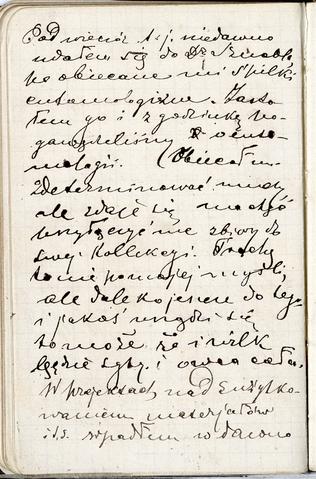 Pod wieczór t.j. niedawno
udałem się do Dr Sznabl
po obiecane mi szpilki
entomologiczne. Zasta-
łem go i z godzinkę po-
gawędziliśmy o ento-
mologii. (Obiecał m.
zdeterminować muchy
ale zdaje się ma chęć
przyłączyć me zbiory do
swej kollekcyi. Trochę
to nie po mojej myśli,
ale daleko jeszcze do tego
i jakoś urządzi się
to może że i wilk
będzie syty i owca cała.
W projektach nad zużytko-
waniem materjałów
i t.d. wpadłem w dawno